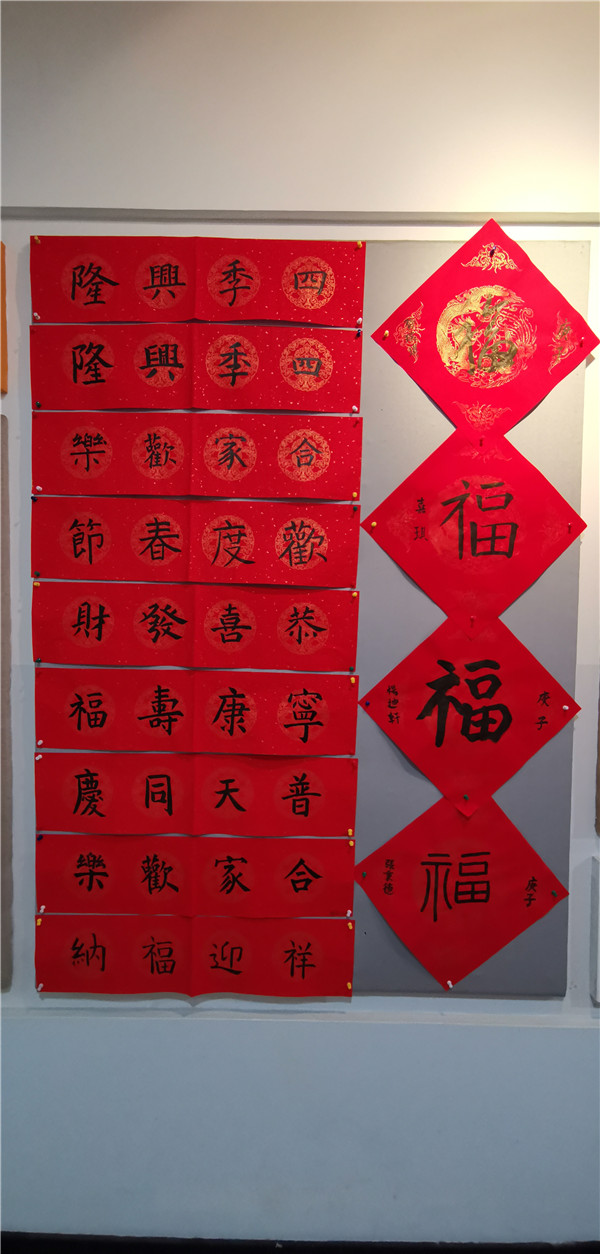 四季興隆
四季興隆
合家歡樂
歡度春節
恭喜發財
寧康壽福
普天同慶
合家歡樂
祥迎福納
福
庚子
福
庚子
福